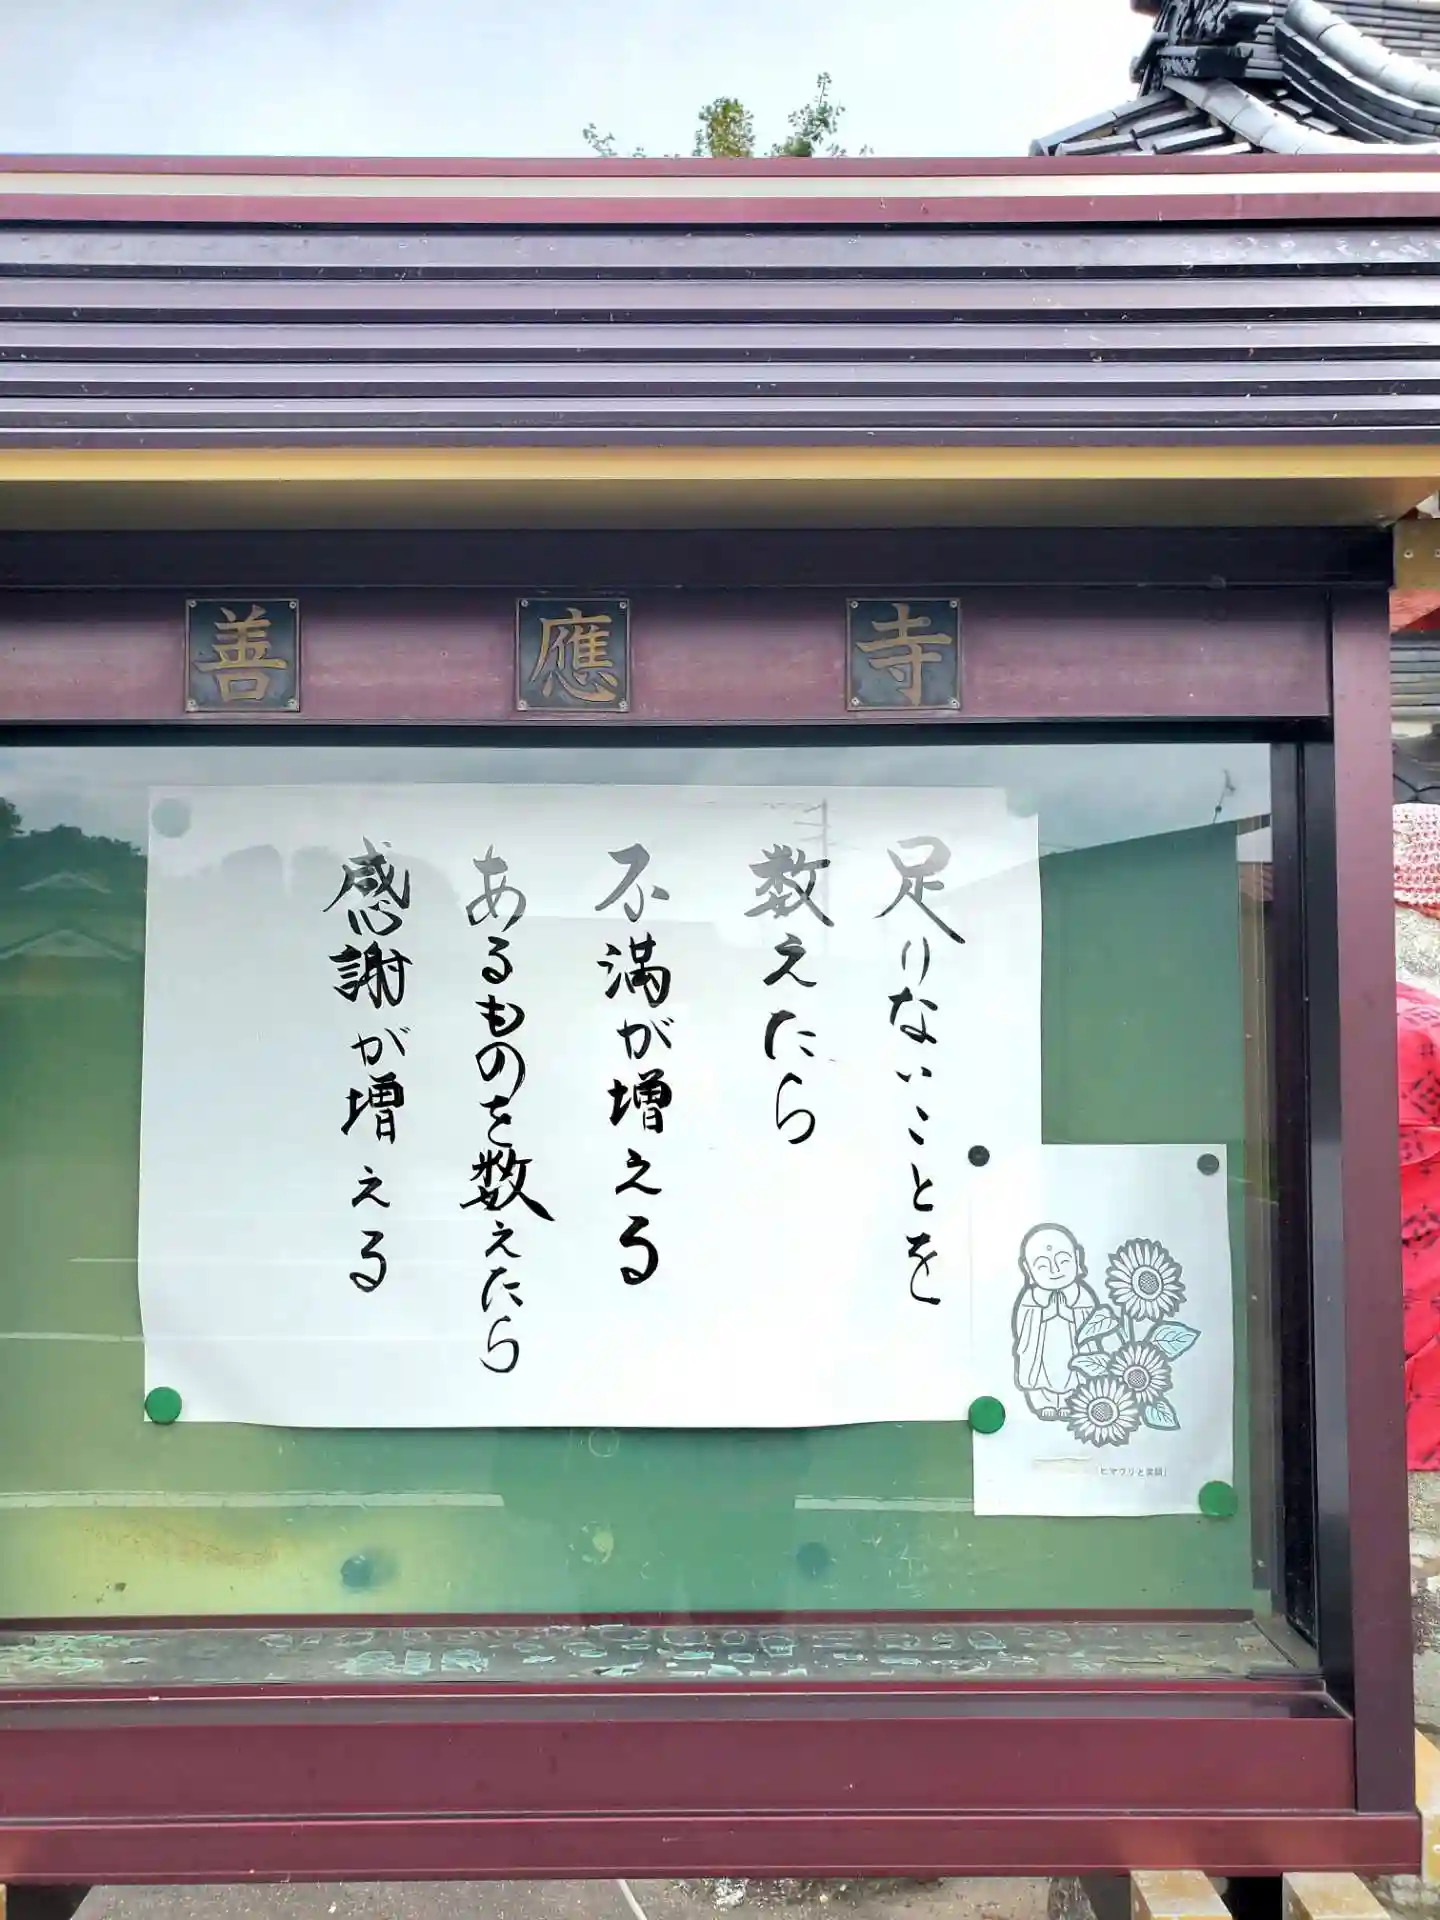 善應寺
足りないことを
数えたら
不満が増える
あるものを数えたら
感謝が増える
「ヒマワリと笑顔」